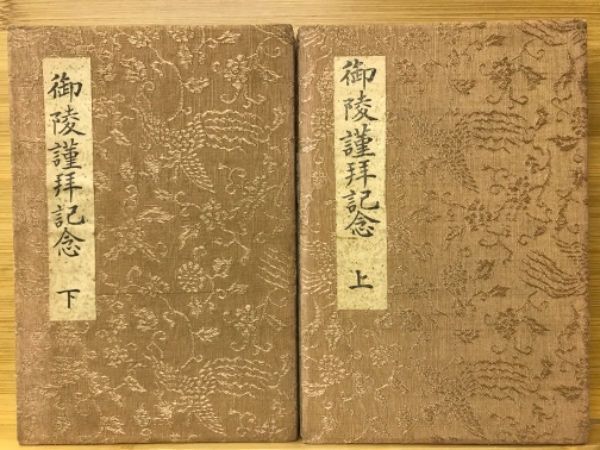 御陵謹拝記念 上
御陵謹拝記念 下